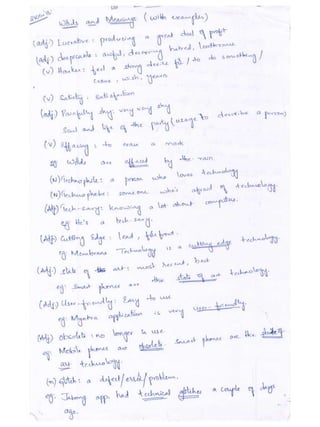 Words and Meanings (with examples)
(adj) Lucrative : producing a great deal of profit
(adj) despicable : awful, deserving hatred, loathsome
(v) Hanker : feel a strong desire for / to do something /
crave, wish, yearn
(v) Satiety : satisfaction
(adj) Painfully shy : very very shy
Soul and life of the party (usage to describe a person)
(v) Effacing : to erase a mark
eg: Words are effaced by the rain
(N) Technophile : a person who loves technology
(N) Technophobe : someone who's afraid of technology
(Adj) Tech-savvy : knowing a lot about computers.
eg: He's a tech-savvy.
(Adj) Cutting Edge : lead, forefront.
eg: Membrane Technology is a cutting edge technology
(Adj) state of the art : most recent, best
eg: Smart phones are the state of art technology.
(Adj) User-friendly : Easy to use
eg: Myntra application is very user-friendly
(Adj) Obsolete : no longer in use
eg: Mobile phones are obsolete Smart phones are the state of
art technology.
(n) Glitch : a defect/error/problem.
eg: Jabong app. had technical glitches a couple of days
ago.